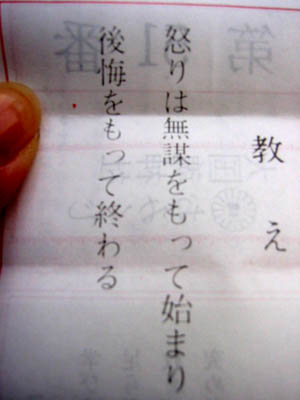 教え
怒りは無謀をもって始まり
後悔をもって終わる